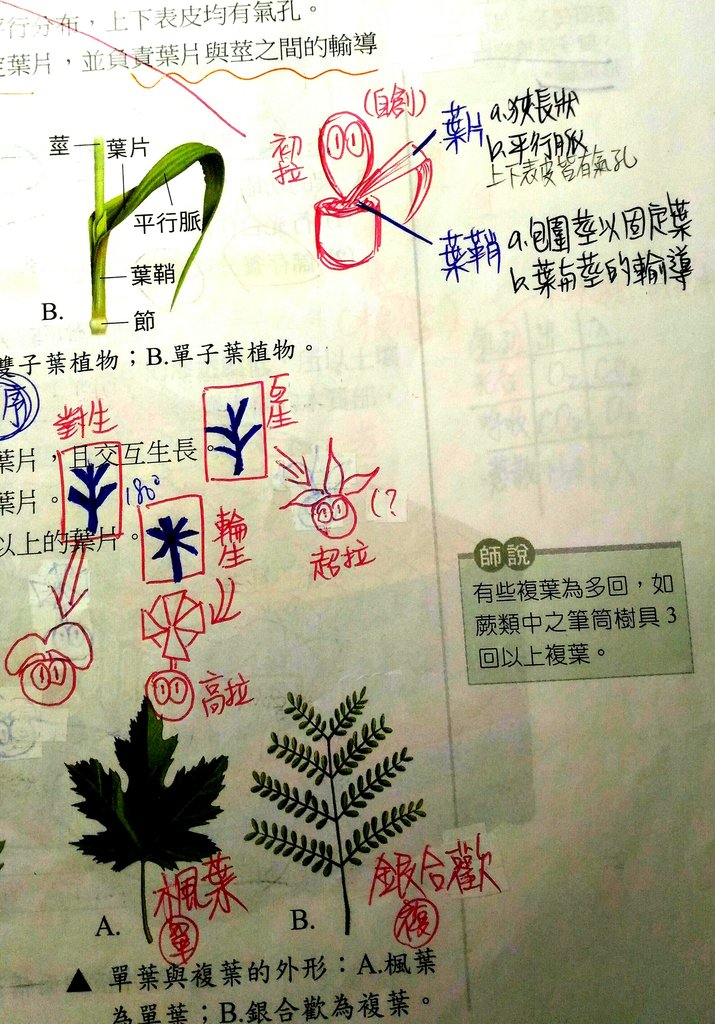 平行分布，上下表皮均有氣孔。
定葉片，並負責葉片與莖之間的輸導
(自創)
初拉
葉片
a.狹長狀
b.平行脈
上下表皮皆有氣孔
葉鞘
a.包圍莖以固定葉
b.葉與莖的輸導
莖
葉片
平行脈
葉鞘
節
B.
雙子葉植物；B.單子葉植物。
序
對生
互生
葉片，且交互生長。
葉片。
180°
以上的葉片。
輪生
(?
超拉
高拉
師說
有些複葉為多回，如
蕨類中之筆筒樹具3
回以上複葉。
A.
楓葉
單
B.
銀合歡
複
▲ 單葉與複葉的外形：A.楓葉
為單葉；B.銀合歡為複葉。